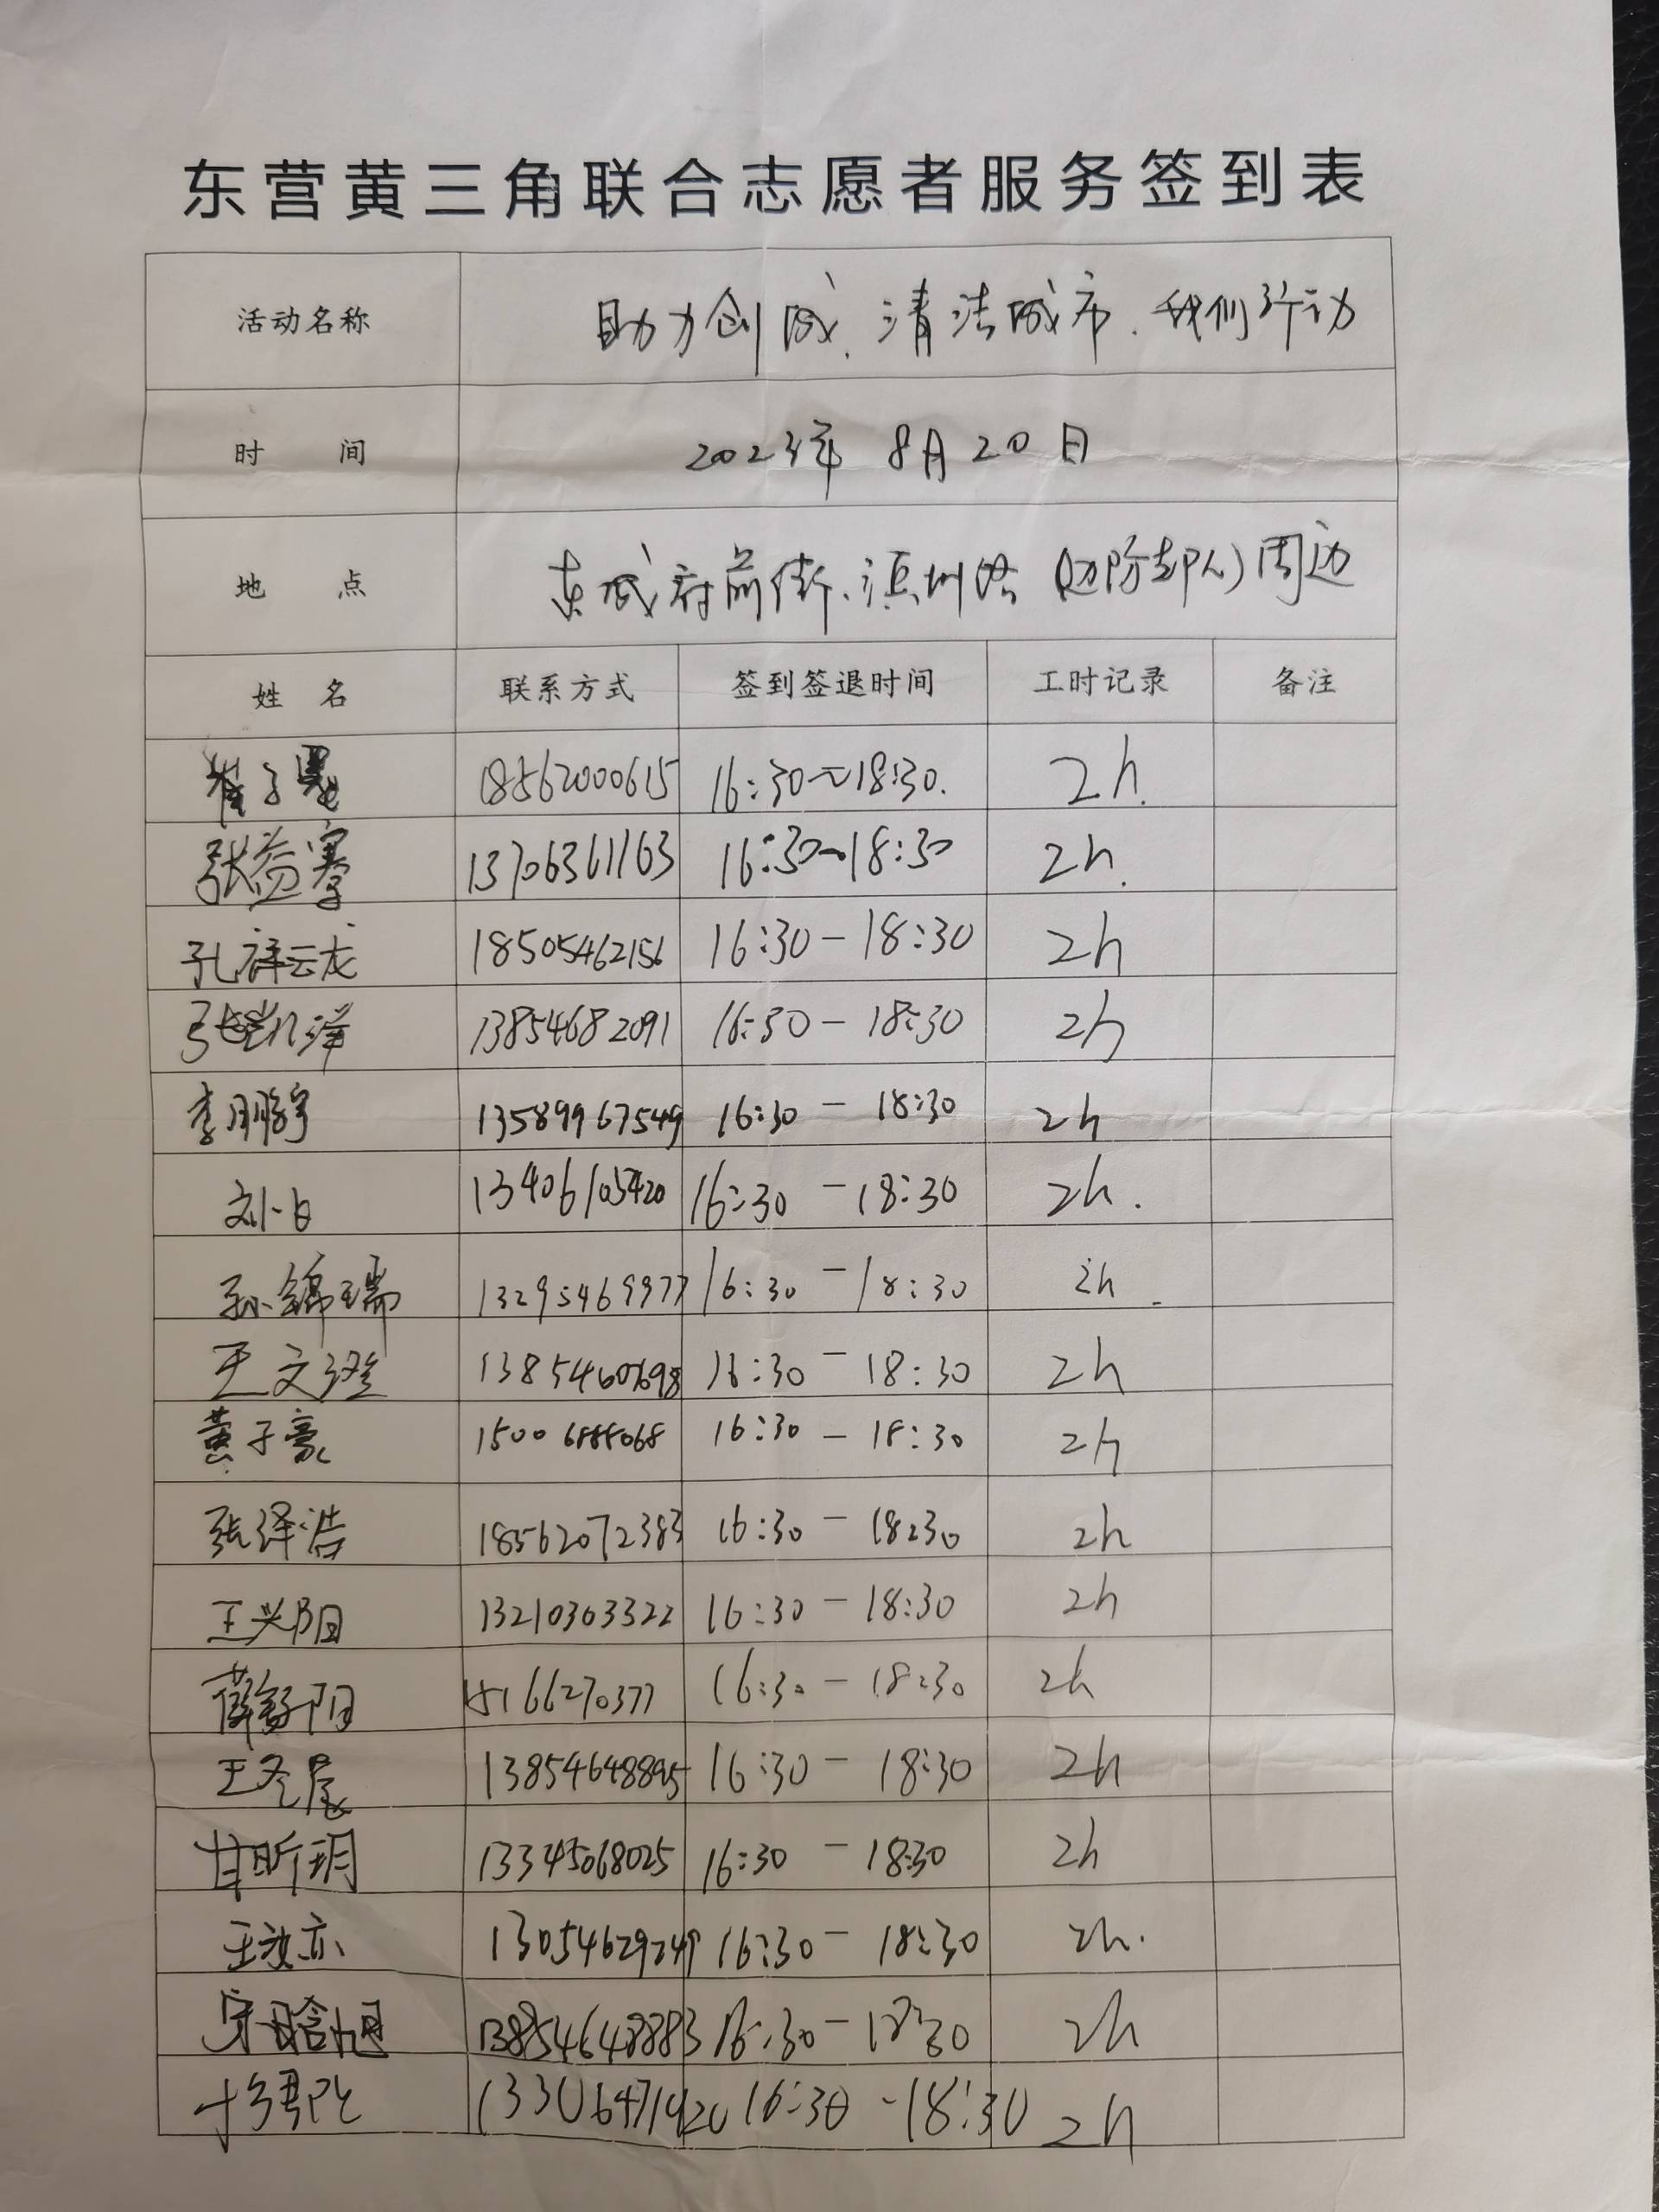 东营黄三角联合志愿者服务签到表
活动名称 助力创城、清洁城市、我们行动
时 间 2023年 8月20日
地 点 东城府前街、深圳路(边防部队)周边
姓 名 联系方式 签到签退时间 工时记录 备注
崔子 18562000615 16:30~18:30. 2h.
张益搴 13706361163 16:30~18:30 2h.
孔祥云龙 18505462156 16:30-18:30 2h
张凯洋 13854682091 16:30-18:30 2h
李鹏宇 13589967549 16:30-18:30 2h
刘一白 13406105420 16:30-18:30 2h.
孙锦瑞 13295469977 16:30-18:30 2h
王文澄 13854607698 16:30-18:30 2h
黄子豪 15006888068 16:30-18:30 2h
张泽浩 18562072383 16:30-18:30 2h
王兴阳 13210303322 16:30-18:30 2h
薛舒阳 15166270377 16:30-18:30 2h
王圣尧 13854648895 16:30-18:30 2h
甘昕玥 13345068025 16:30-18:30 2h
王 亦 13054629249 16:30-18:30 2h.
宋晗旭 13854648883 16:30-18:30 2h
13306471420 16:30-18:30 2h